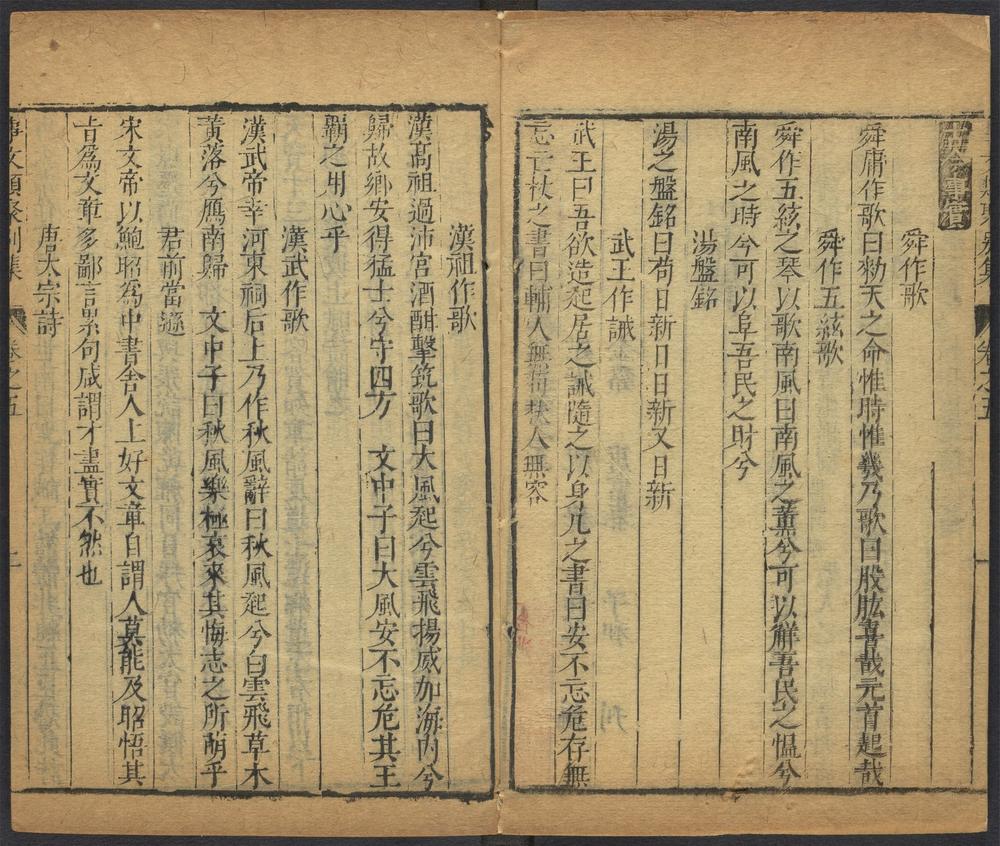 古今事實
舜作歌
舜庸作歌曰勑天之命惟時惟幾乃歌曰股肱喜哉元首起哉
舜作五絃歌
舜作五絃之琴以歌南風曰南風之薰兮可以觧吾民之愠兮
南風之時兮可以阜吾民之財兮
湯盤銘
湯之盤銘曰苟日新日日新又日新
武王作誡
武王曰吾欲造起居之誡隨之以身几之書曰安不忘危存無
忘亡杖之書曰輔人無苟扶人無容
漢祖作歌
漢高祖過沛宫酒酣擊筑歌曰大風起兮雲飛揚威加海内兮
歸故鄉安得猛士兮守四方 文中子曰大風安不忘危其王
覇之用心乎
漢武作歌
漢武帝幸河東祠后土乃作秋風辭曰秋風起兮白雲飛草木
黄落兮鴈南歸 文中子曰秋風樂極哀來其悔志之所萌乎
君前當遜
宋文帝以鮑昭為中書舍人上好文章自謂人莫能及昭悟其
旨為文章多鄙言累句咸謂才盡實不然也
唐太宗詩
事文類聚別集 卷之五